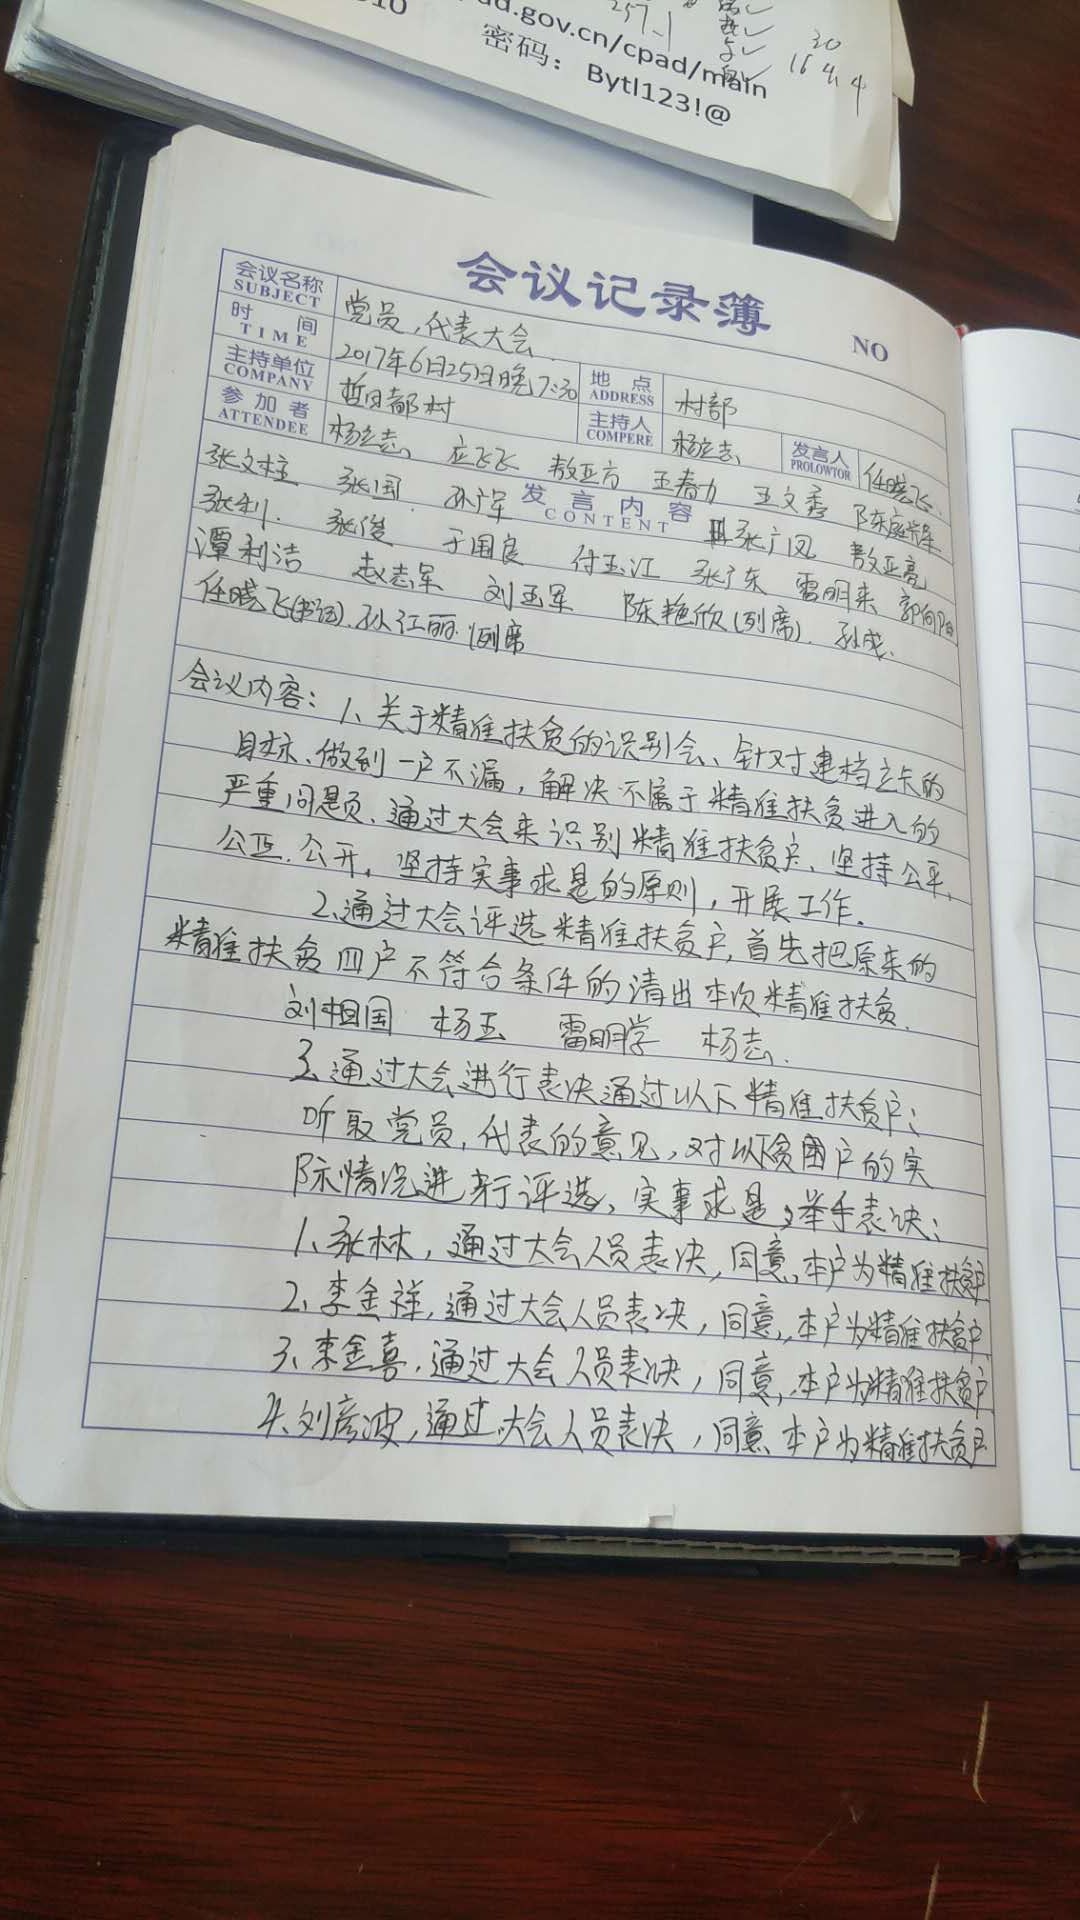 257.1
30
16 4 4
ad.gov.cn/cpad/main
密码： Bytl123!@
会议记录簿
NO
会议名称 SUBJECT 党员，代表大会
时间 TIME 2017年6月25日晚7:30 地点 ADDRESS 村部
主持单位 COMPANY 哲日都村 主持人 COMPERE 杨立志 发言人 PROLOWTOR 任晓飞
参加者 ATTENDEE 杨立志 应飞飞 敖亚方 王春力 王文秀 陈庭军
发言内容 CONTENT
张文柱 张国 孙军 张广凤 敖亚亮
张利 张俊 于国良 付玉江 张广东 雷明来 郭向阳
潭利洁 赵志军 刘玉军 陈艳欣(列席) 孙成
任晓飞(书记) 孙江丽 列席
会议内容：1、关于精准扶贫的识别会、针对建档立卡的
目标、做到一户不漏，解决不属于精准扶贫进入的
严重问题、通过大会来识别精准扶贫户、坚持公平、
公正、公开，坚持实事求是的原则，开展工作。
2、通过大会评选精准扶贫户，首先把原来的
精准扶贫四户不符合条件的清出本次精准扶贫。
刘祖国 杨玉 雷明学 杨志
3、通过大会进行表决通过以下精准扶贫户；
听取党员，代表的意见，对以下贫困户的实
际情况进行评选，实事求是，举手表决；
1、张林，通过大会人员表决，同意，本户为精准扶贫户
2、李金祥，通过大会人员表决，同意，本户为精准扶贫户
3、李金喜，通过大会人员表决，同意，本户为精准扶贫户
4、刘彦波，通过大会人员表决，同意、本户为精准扶贫户